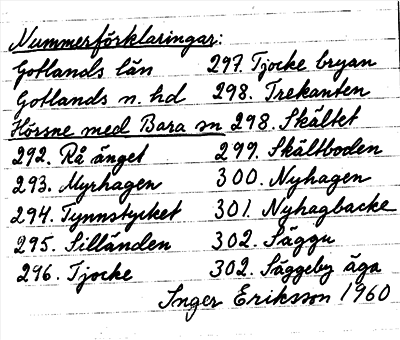 Nummerförklaringar:
Gotlands län 297. Tjocke bryan
Gotlands n. hd 298. Trekanten
Hörsne med Bara sn 298. Skältet
292. Rå änget 299. Skältboden
293. Myrhagen 300. Nyhagen
294. Tynnstycket 301. Nyhagbacke
295. Silländen 302. Säggu
296. Tjocke 302. Säggeby äga
Inger Eriksson 1960